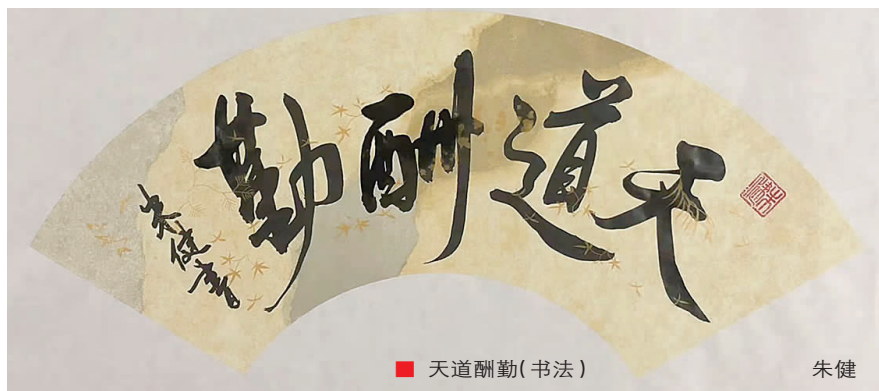 天道酬勤
朱健书
天道酬勤(书法)
朱健